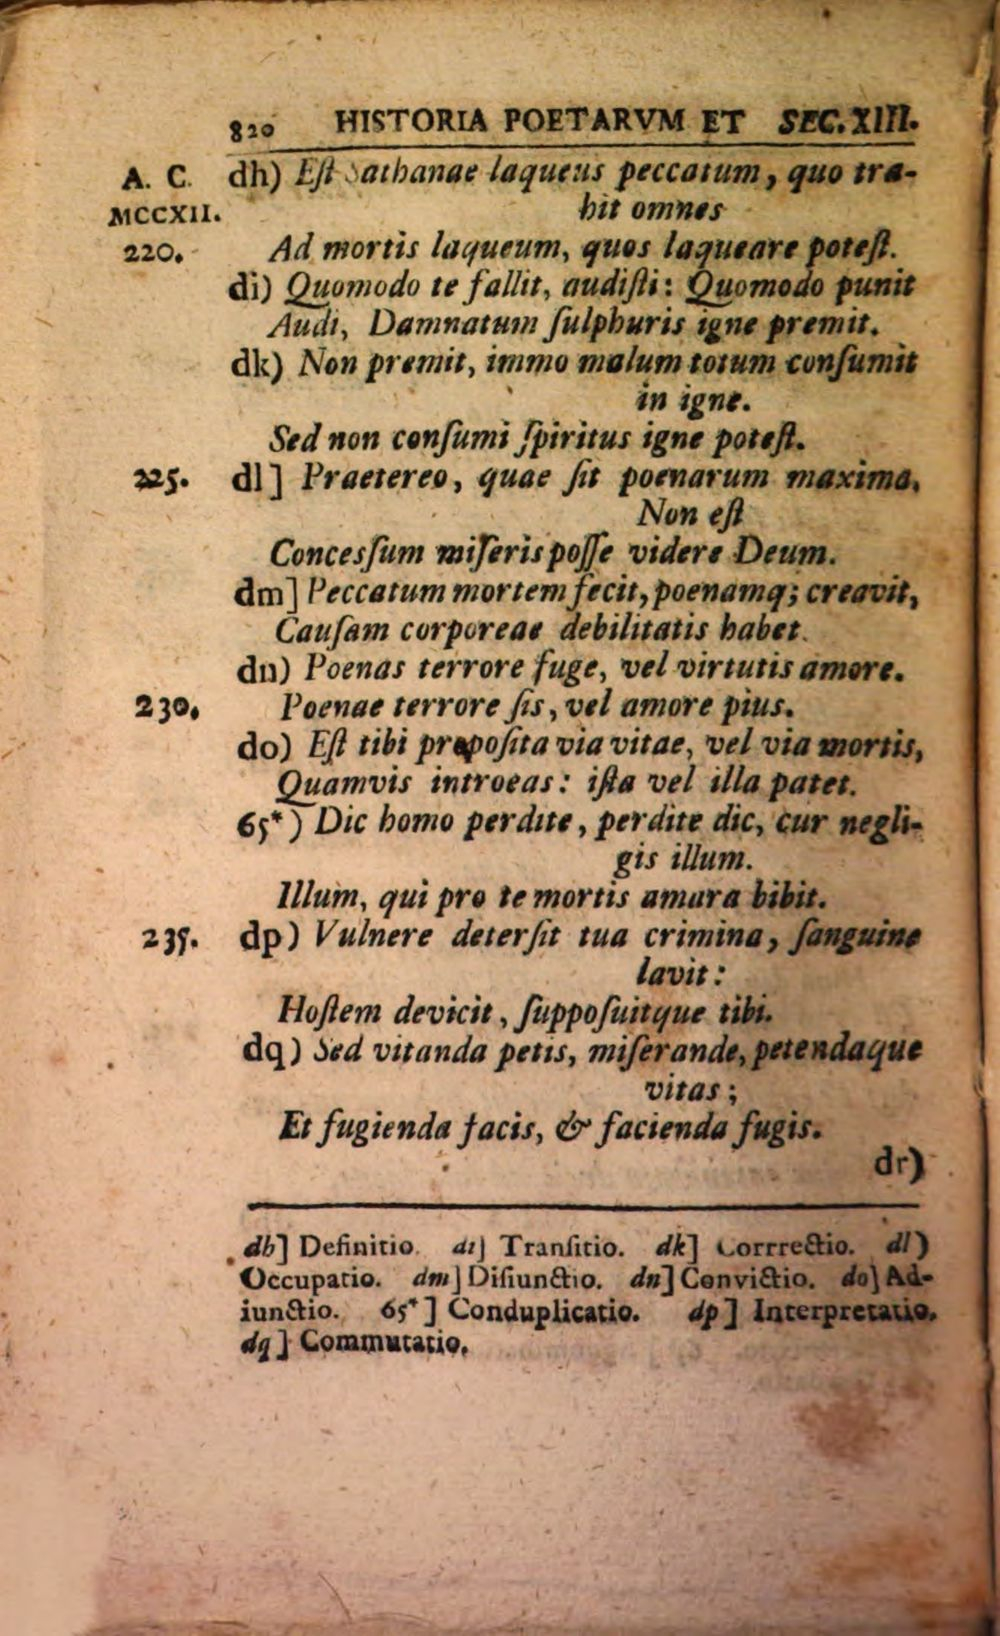 820 HISTORIA POETARVM ET SEC. XIII.
A. C. dh) Eſt Sathanae laqueus peccatum, quo tra-
MCCXII. hit omnes
220. Ad mortis laqueum, quos laqueare poteſt.
di) Quomodo te fallit, audiſti: Quomodo punit
Audi, Damnatum ſulphuris igne premit.
dk) Non premit, immo malum totum conſumit
in igne.
Sed non conſumi ſpiritus igne poteſt.
225. dl] Praetereo, quae ſit poenarum maxima.
Non eſt
Concesſum miſeris poſſe videre Deum.
dm] Peccatum mortem fecit, poenamq; creavit,
Cauſam corporeae debilitatis habet.
dn) Poenas terrore fuge, vel virtutis amore.
230. Poenae terrore ſis, vel amore pius.
do) Eſt tibi prepoſita via vitae, vel via mortis,
Quamvis introeas: iſta vel illa patet.
65*) Dic homo perdite, perdite dic, cur negli-
gis illum.
Illum, qui pro te mortis amara bibit.
235. dp) Vulnere deterſit tua crimina, ſanguine
lavit:
Hoſtem devicit, ſuppoſuitque tibi.
dq) Sed vitanda petis, miſerande, petendaque
vitas;
Et fugienda facis, & facienda fugis.
dr)
dh] Definitio. di] Tranſitio. dk] Corrrectio. dl)
Occupatio. dm] Diſiunctio. dn] Convictio. do] Ad-
iunctio. 65*] Conduplicatio. dp] Interpretatio.
dq] Commutatio.